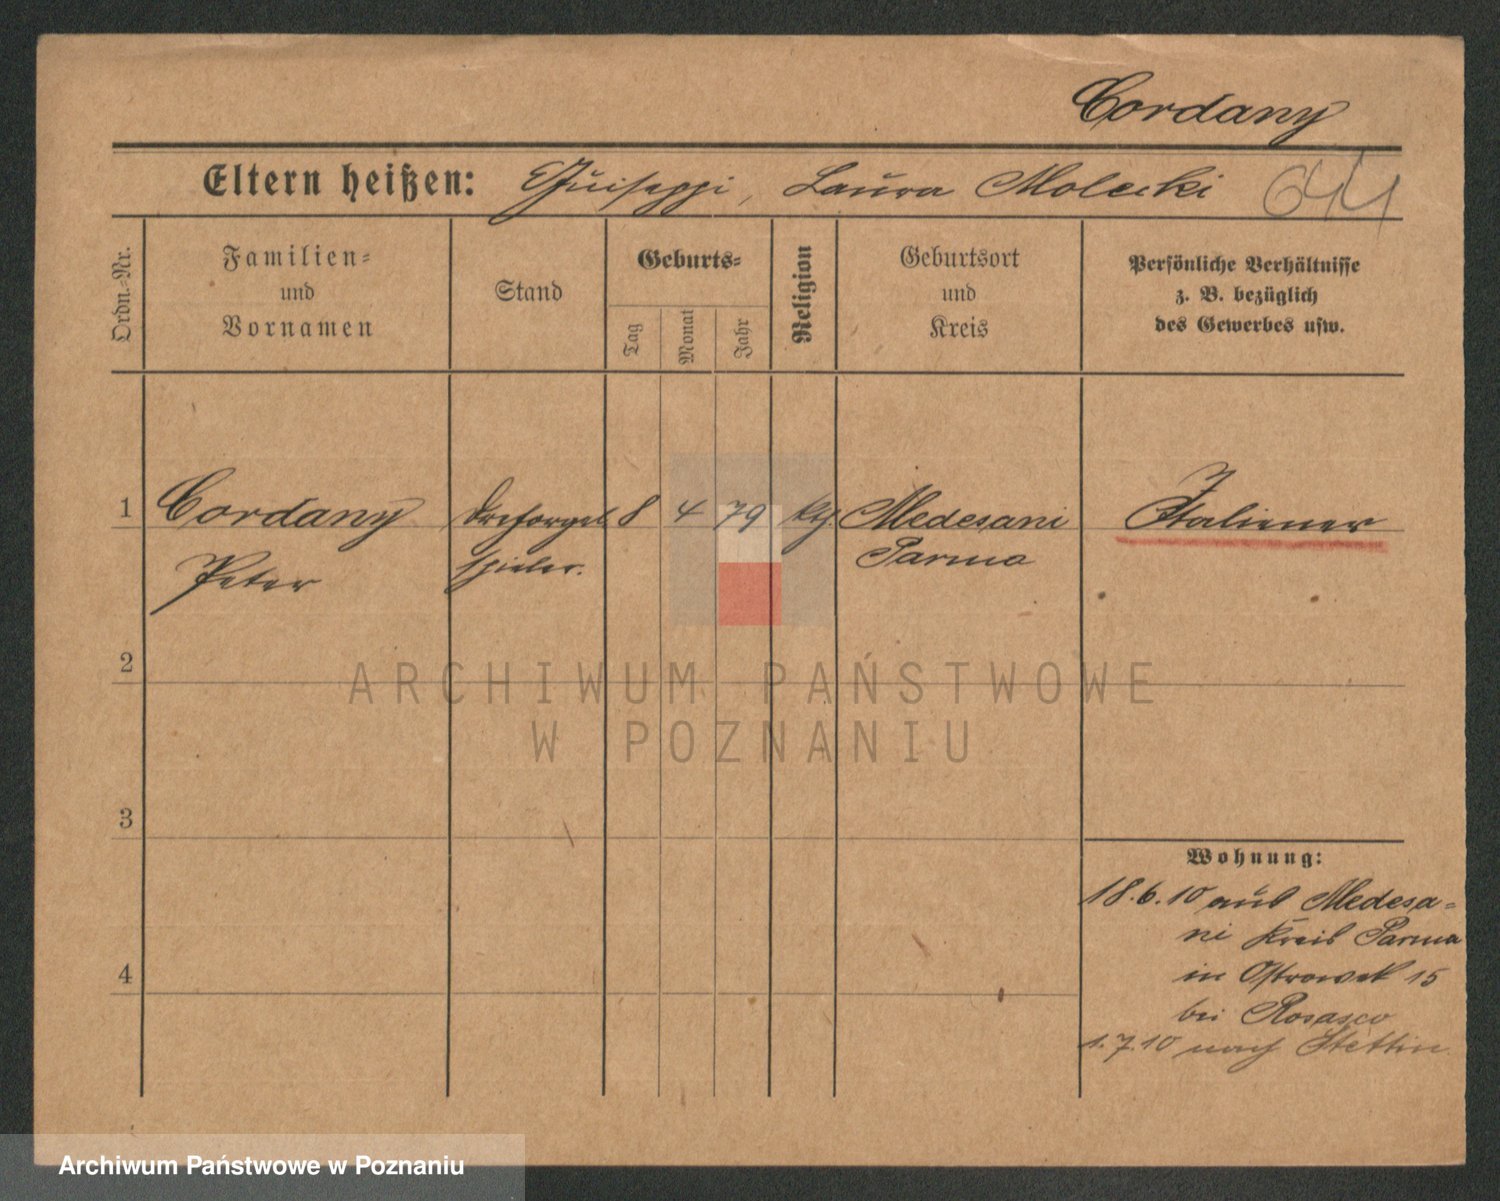 Cordany
Eltern heißen: Guiseppi, Laura Molecki 644
Ordn.-Nr.
Familien-
und
Vornamen
Stand
Geburts-
Tag
Monat
Jahr
Religion
Geburtsort
und
Kreis
Persönliche Verhältnisse
z. B. bezüglich
des Gewerbes usw.
1 Cordany Drehorgel 8 4 79 kth. Medesani Italiener
Peter spieler. Parma
2
ARCHIWUM PAŃSTWOWE
W POZNANIU
3
Wohnung:
18.6.10 aus Medesa-
ni Kreis Parma
4
in Ostrowek 15
bei Rosasco
1.7.10 nach Stettin
Archiwum Państwowe w Poznaniu